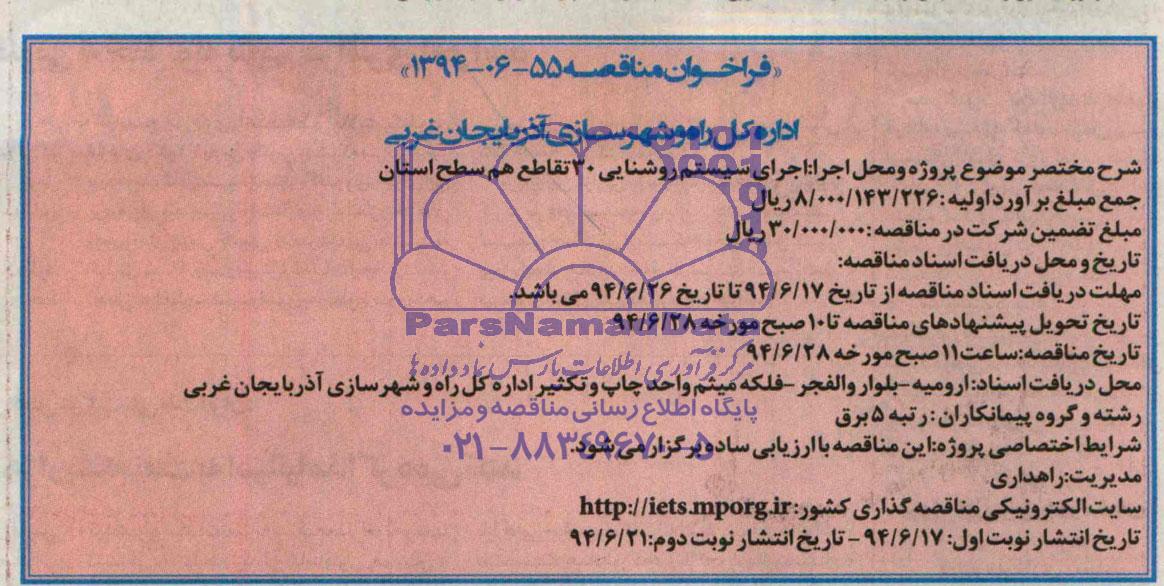 «فراخوان مناقصه ۵۵-۰۶-۱۳۹۴»
اداره کل راه و شهرسازی آذربایجان غربی
شرح مختصر موضوع پروژه ومحل اجرا:اجرای سیستم روشنایی ۳۰ تقاطع هم سطح استان
جمع مبلغ برآورد اولیه:۸/۰۰۰/۱۴۳/۲۲۶ ریال
مبلغ تضمین شرکت در مناقصه:۳۰/۰۰۰/۰۰۰ ریال
تاریخ و محل دریافت اسناد مناقصه:
مهلت دریافت اسناد مناقصه از تاریخ ۹۴/۶/۱۷ تا تاریخ ۹۴/۶/۲۶ می باشد.
تاریخ تحویل پیشنهادهای مناقصه تا۱۰ صبح مورخه ۹۴/۶/۲۸
ParsNamadData
تاریخ مناقصه:ساعت۱۱ صبح مورخه ۹۴/۶/۲۸
مرکز فرآوری اطلاعات پارس نماد داده ها
محل دریافت اسناد:ارومیه -بلوار والفجر -فلکه میثم واحد چاپ و تکثیر اداره کل راه و شهرسازی آذربایجان غربی
رشته و گروه پیمانکاران : رتبه ۵ برق
پایگاه اطلاع رسانی مناقصه و مزایده
شرایط اختصاصی پروژه:این مناقصه با ارزیابی ساده برگزار می شود.
۰۲۱-۸۸۳۴۹۶۷۰-۵
مدیریت:راهداری
سایت الکترونیکی مناقصه گذاری کشور: http://iets.mporg.ir
تاریخ انتشار نوبت اول: ۹۴/۶/۱۷ - تاریخ انتشار نوبت دوم:۹۴/۶/۲۱